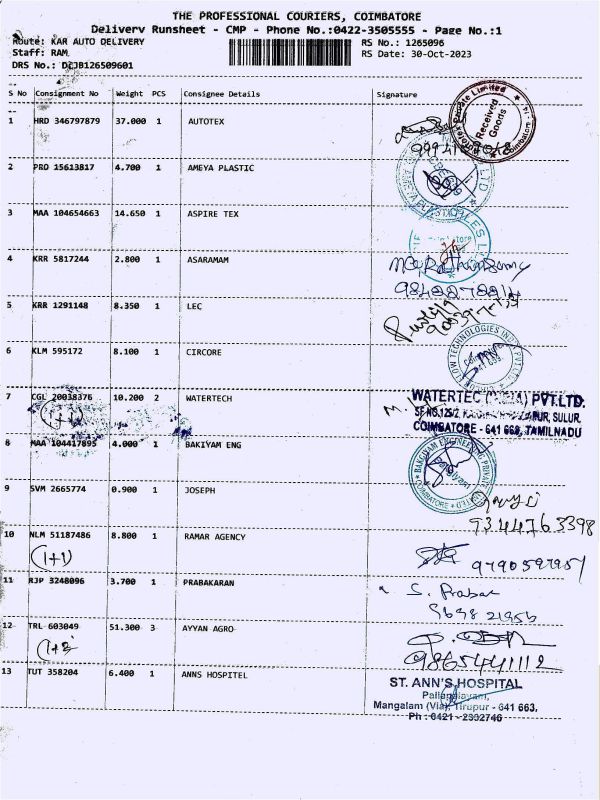 THE PROFESSIONAL COURIERS, COIMBATORE
Delivery Runsheet - CMP - Phone No.:0422-3505555 - Page No.:1
Route: KAR AUTO DELIVERY RS No.: 1265096
Staff: RAM. RS Date: 30-Oct-2023
DRS No.: DCJB126509601
S No Consignment No Weight PCS Consignee Details Signature
1 HRD 346797879 37.000 1 AUTOTEX
Received Goods
Coimbatore
2 PRO 15613817 4.700 1 AMEYA PLASTIC
3 MAA 104654663 14.650 1 ASPIRE TEX
4 KRR 5817244 2.800 1 ASARAMAM
5 KRR 1291148 8.350 1 LEC
6 KLM 595172 8.100 1 CIRCORE
7 CGL 20038376 10.200 2 WATERTECH
(1+1)
WATERTEC (INDIA) PVT.LTD.
COIMBATORE - 641 668, TAMILNADU
8 MAA 104417895 4.000 1 BAKIYAM ENG
BAKIYAM ENGINEERING PRIVATE LIMITED
COIMBATORE
9 SVM 2665774 0.900 1 JOSEPH
9344763398
10 NLM 51187486 8.800 1 RAMAR AGENCY
(1+1)
11 RJP 3248096 3.700 1 PRABAKARAN
S. Praba
12 TRL 603049 51.300 3 AYYAN AGRO
9865441112
13 TUT 358204 6.400 1 ANNS HOSPITEL
ST. ANN'S HOSPITAL
Pallapalayam,
Mangalam (Via), Tirupur - 641 663.
Ph : 0421 - 2332746